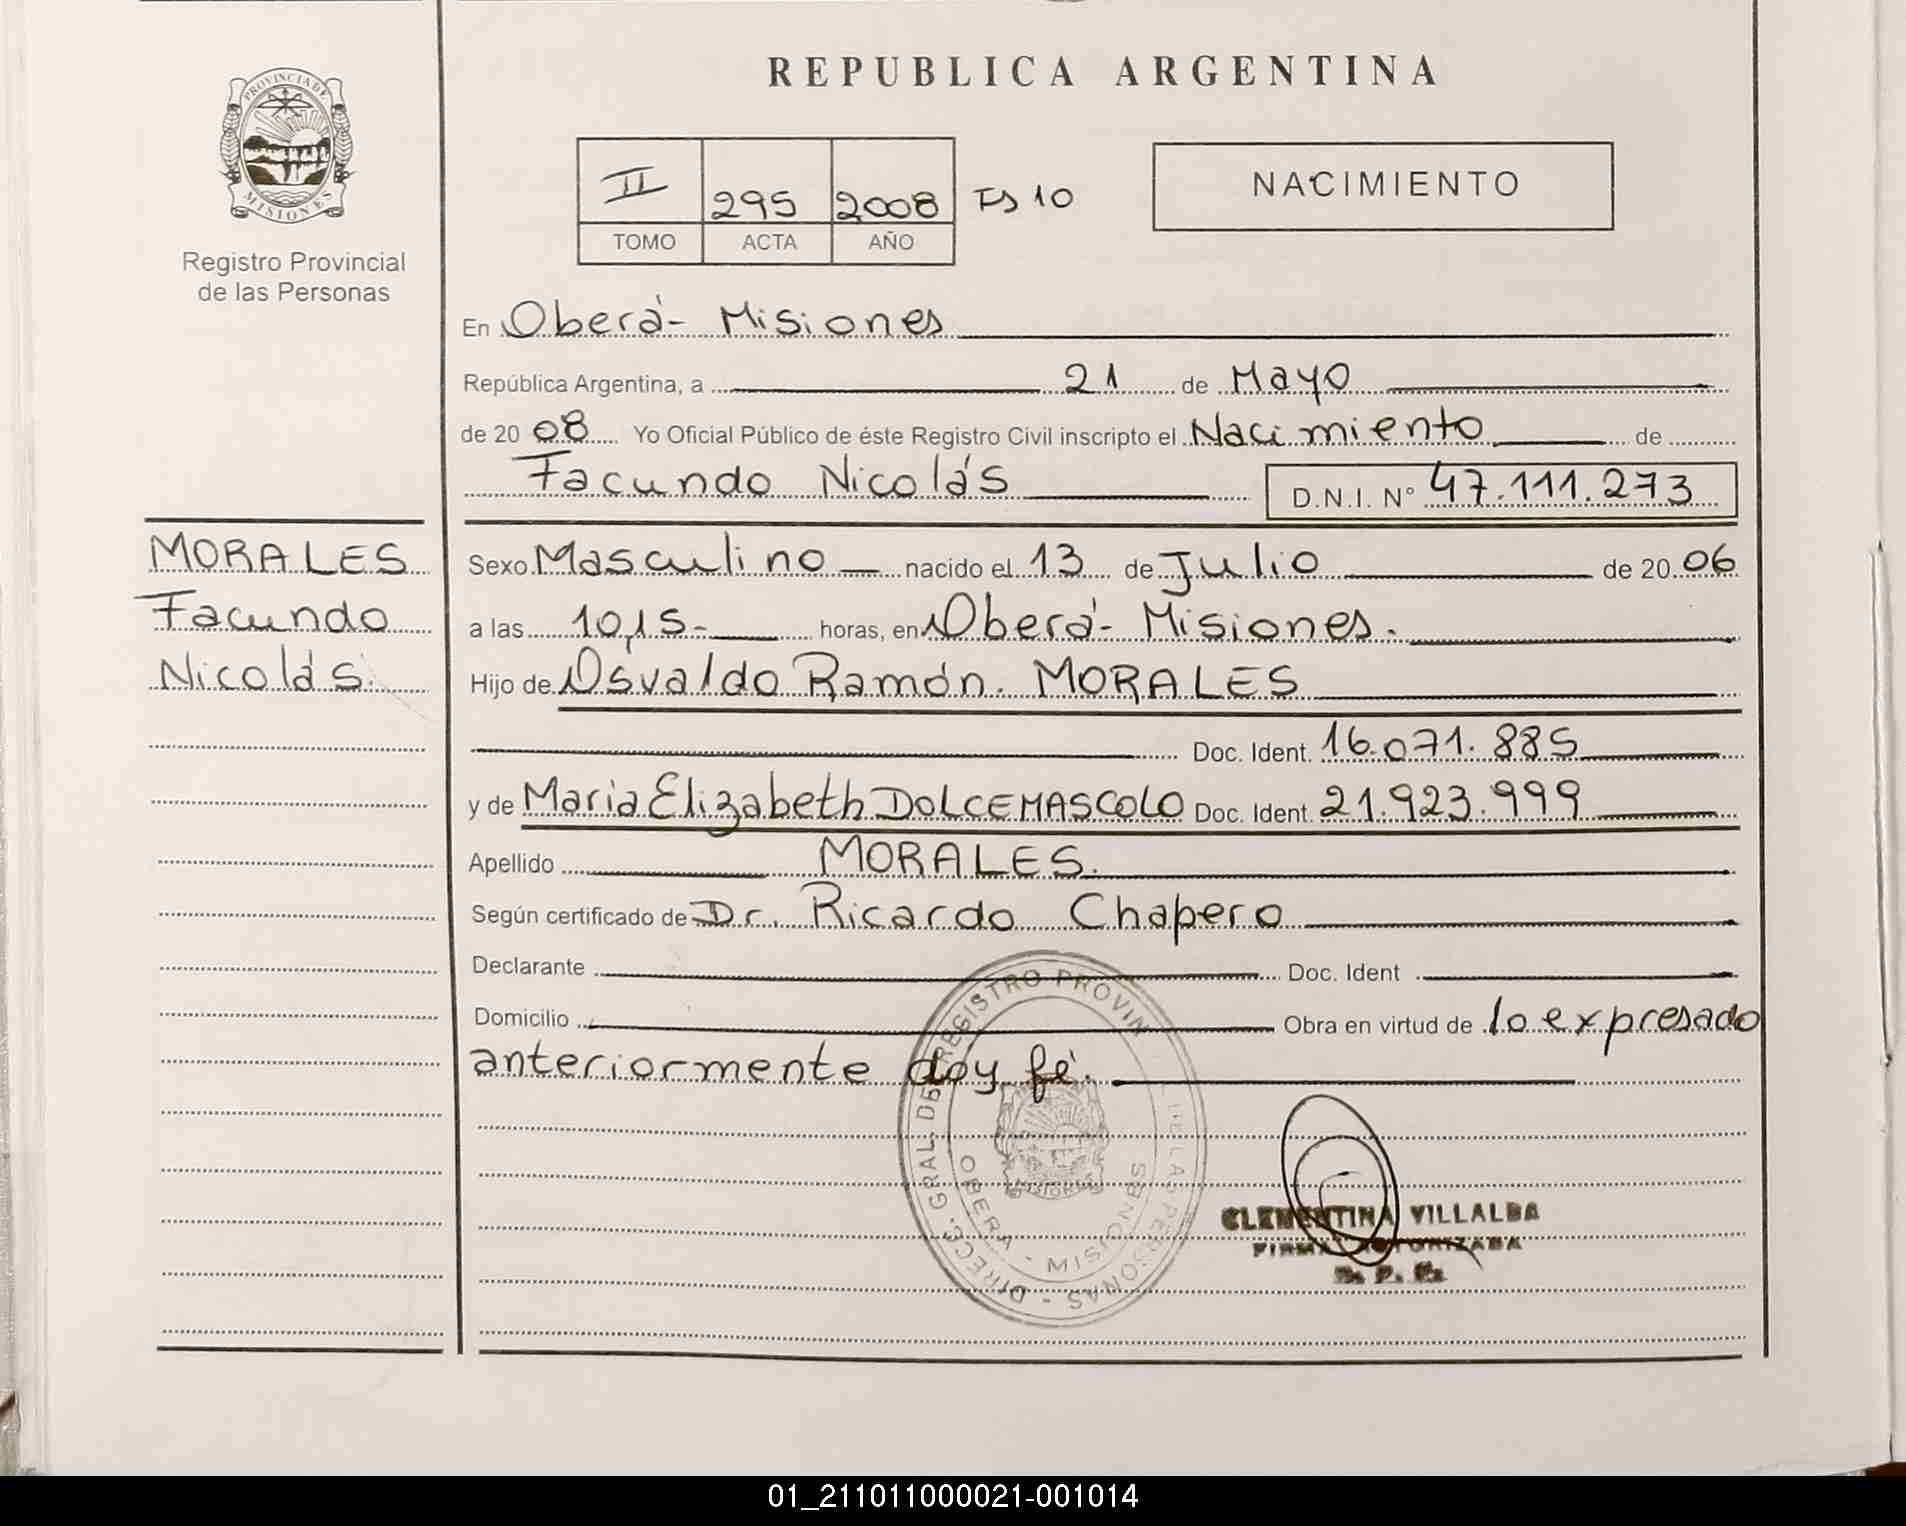 REPUBLICA ARGENTINA
PROVINCIA DE
MISIONES
Registro Provincial
de las Personas
II 295 2008 Fs 10
TOMO ACTA AÑO
NACIMIENTO
En Oberá- Misiones
República Argentina, a 21 de Mayo
de 20 08 Yo Oficial Público de éste Registro Civil inscripto el Nacimiento de
Facundo Nicolás D.N.I. N° 47.111.273
MORALES
Facundo
Nicolás.
Sexo Masculino nacido el 13 de Julio de 20 06
a las 10,15- horas, en Oberá- Misiones.
Hijo de Osvaldo Ramón. MORALES
Doc. Ident. 16.071.885
y de Maria Elizabeth DOLCEMASCOLO Doc. Ident. 21.923.999
Apellido MORALES.
Según certificado de Dr. Ricardo Chapero
Declarante Doc. Ident
Domicilio Obra en virtud de lo expresado
anteriormente doy fé.
DIRECC. GRAL. DE REGISTRO PROVINCIAL DE LAS PERSONAS -
OBERA - MISIONES
MISIONES
CLEMENTINA VILLALBA
FIRMA AUTORIZADA
01_211011000021-001014